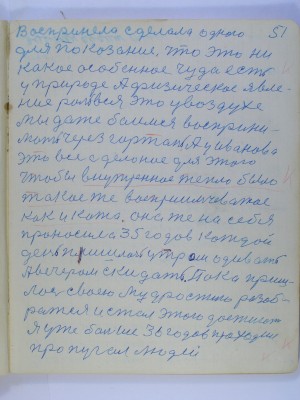 51
Восприняло сделала одного
для показание. что это ни
какое особенное чуда есть
у природе А физическое явле-
ние рамвся это увоздухе
мы даже боимся восприни-
мать через гортань А у Иванова
это все сделоное для этого
чтобы внутренное тело было
такоеже восприимчеваное
как и кожа. она же на себя
проносила 35 годов каждой
день пришлось утром одивать
А вечером скидать. Пока приш-
лось своею мудростью разоб-
ратся и стал этого достигат
Я уже больше 36 годов проходил
пропугал людей